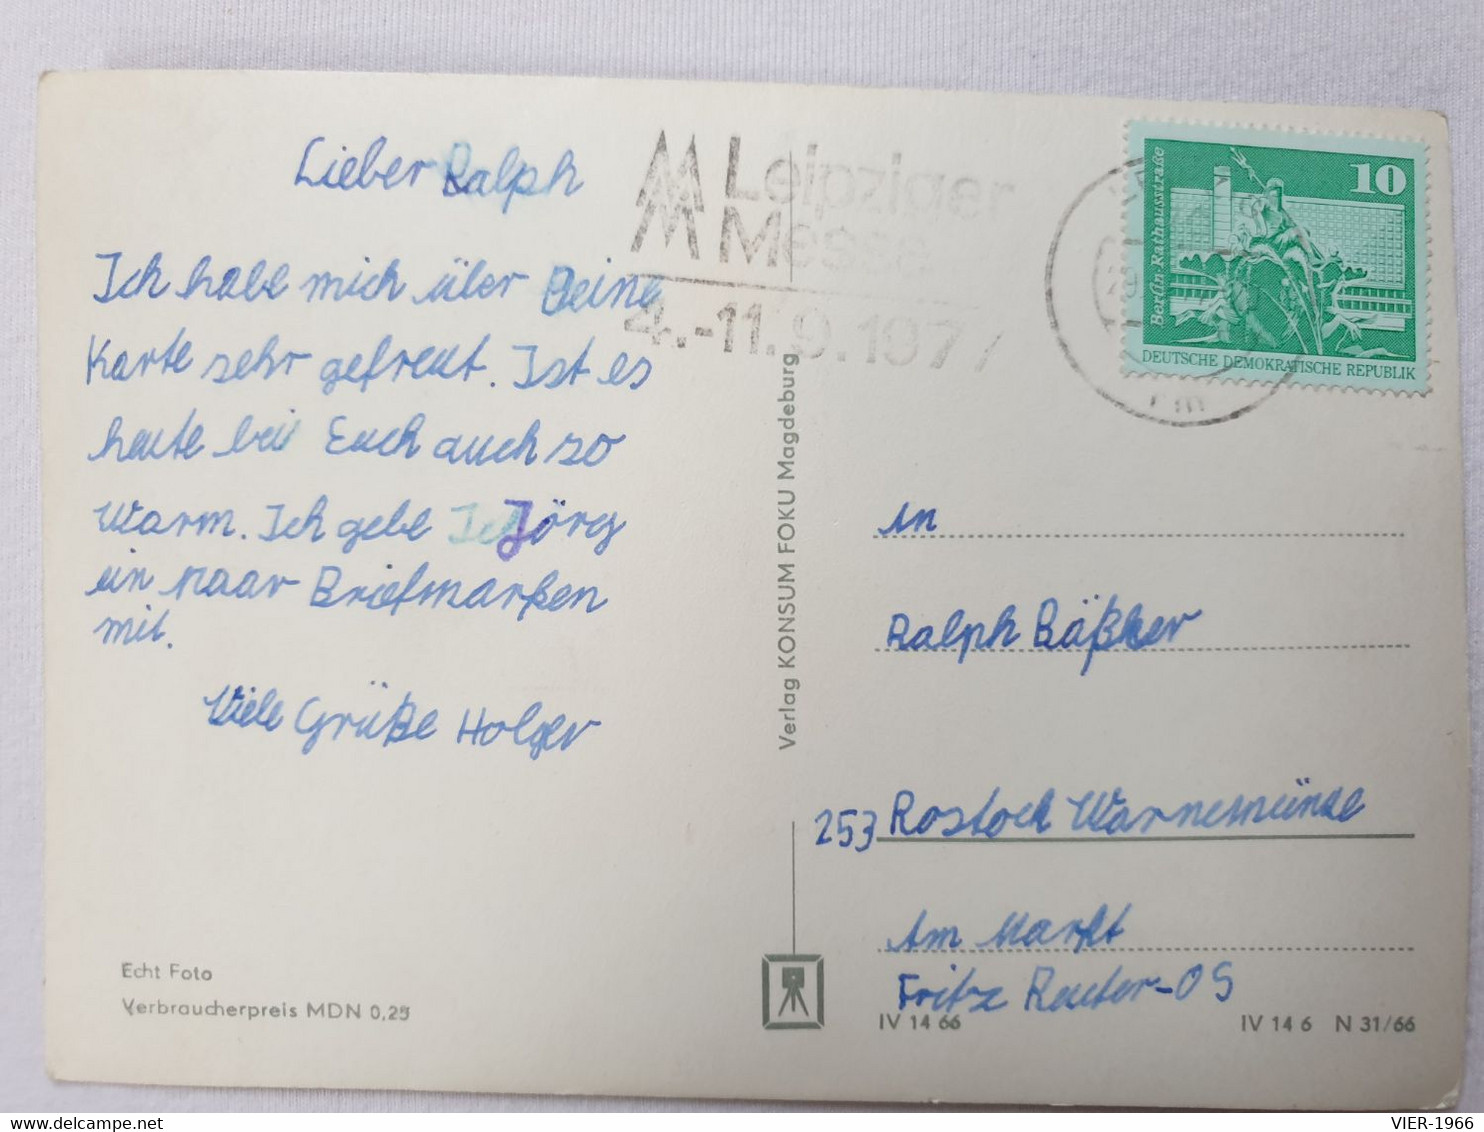 Lieber Ralph
Ich habe mich über Deine
Karte sehr gefreut. Ist es
heute bei Euch auch so
Warm. Ich gebe Jörg
ein paar Briefmarken
mit.
Viele Grüße Holger
Echt Foto
Verbraucherpreis MDN 0,25
Leipziger
Messe
4.-11.9.1977
Verlag KONSUM FOKU Magdeburg
10
Berlin, Rathausstraße
DEUTSCHE DEMOKRATISCHE REPUBLIK
an
Ralph Bäßker
253 Rostock Warnemünde
Am Markt
Fritz Reuter-OS
IV 14 66
IV 14 6 N 31/66
delcampe.net
VIER-1966